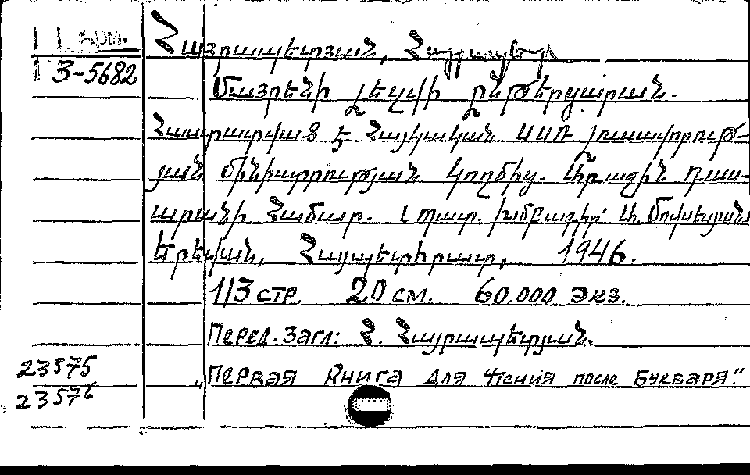 Арм.
3-5682
Հայրապետյան, Հայրապետ
Մայրենի լեզվի ընթերցարան.
Հաստատված է Հայկական ՍՍՌ լուսավորութ-
յան մինիստրության կողմից. Առաջին դաս-
արանի համար. Խմբագիր՝ Մովսեսյան
Երևան, Հայպետհրատ, 1946.
113 стр 20 см. 60.000 экз.
Перед. загл: Հ. Հայրապետյան.
„Первая книга для чтения после Букваря“.
23575
23576